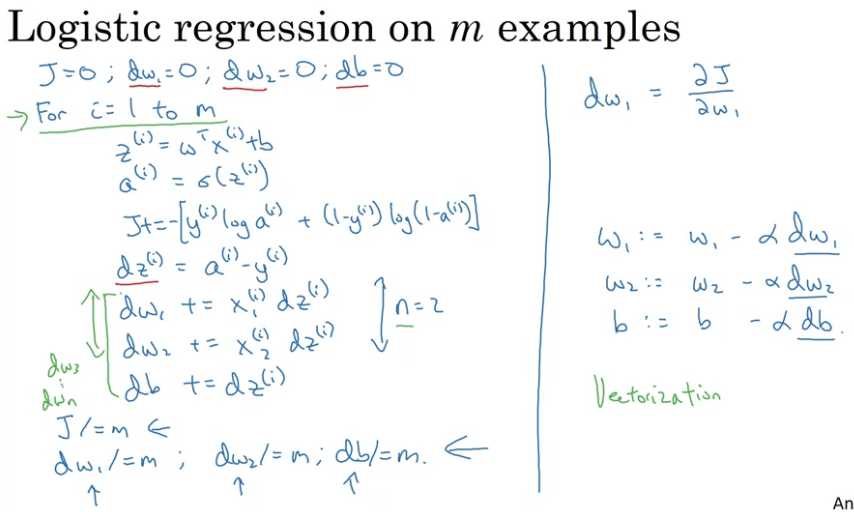 Logistic regression on m examples
J=0 ; dw₁=0 ; dw₂=0 ; db=0
→ For i=1 to m
z⁽ⁱ⁾ = wᵀx⁽ⁱ⁾+b
a⁽ⁱ⁾ = σ(z⁽ⁱ⁾)
J+=-[y⁽ⁱ⁾ log a⁽ⁱ⁾ + (1-y⁽ⁱ⁾) log(1-a⁽ⁱ⁾)]
dz⁽ⁱ⁾ = a⁽ⁱ⁾-y⁽ⁱ⁾
dw₁ += x₁⁽ⁱ⁾ dz⁽ⁱ⁾
dw₂ += x₂⁽ⁱ⁾ dz⁽ⁱ⁾
n=2
db += dz⁽ⁱ⁾
dw₃
⋮
dwₙ
J/=m ←
dw₁/=m ; dw₂/=m ; db/=m. ←
dw₁ = ∂J/∂w₁
w₁ := w₁ - α dw₁
w₂ := w₂ - α dw₂
b := b - α db.
Vectorization
An